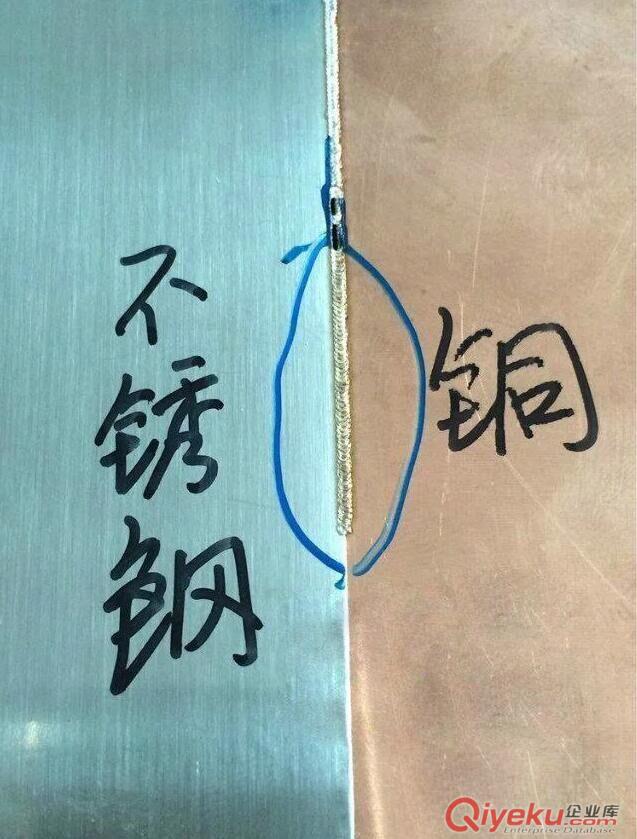 不锈钢
铜
Qiyeku企业库
Enterprise Database